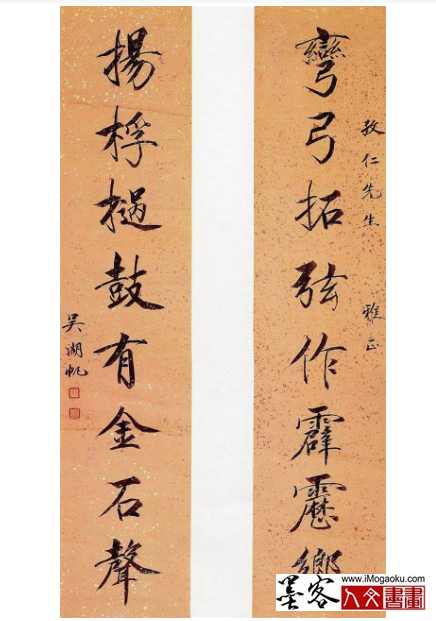 孜仁先生 雅正
彎弓拓弦作霹靂
揚桴檛鼓有金石聲
吳湖帆
墨客
www.iMogaoku.com
人文書畫